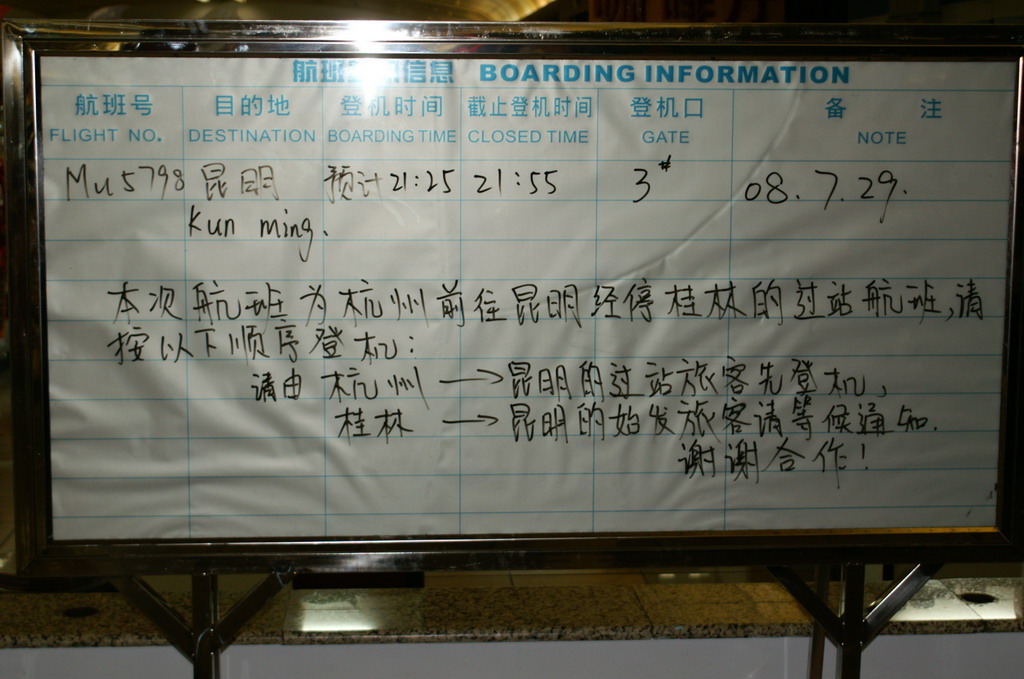 航班 信息 BOARDING INFORMATION
航班号 目的地 登机时间 截止登机时间 登机口 备 注
FLIGHT NO. DESTINATION BOARDING TIME CLOSED TIME GATE NOTE
Mu5798 昆明 预计21:25 21:55 3# 08.7.29.
Kun ming.
本次航班为杭州前往昆明经停桂林的过站航班,请
按以下顺序登机:
请由杭州→昆明的过站旅客先登机,
桂林→昆明的始发旅客请等候通知.
谢谢合作!